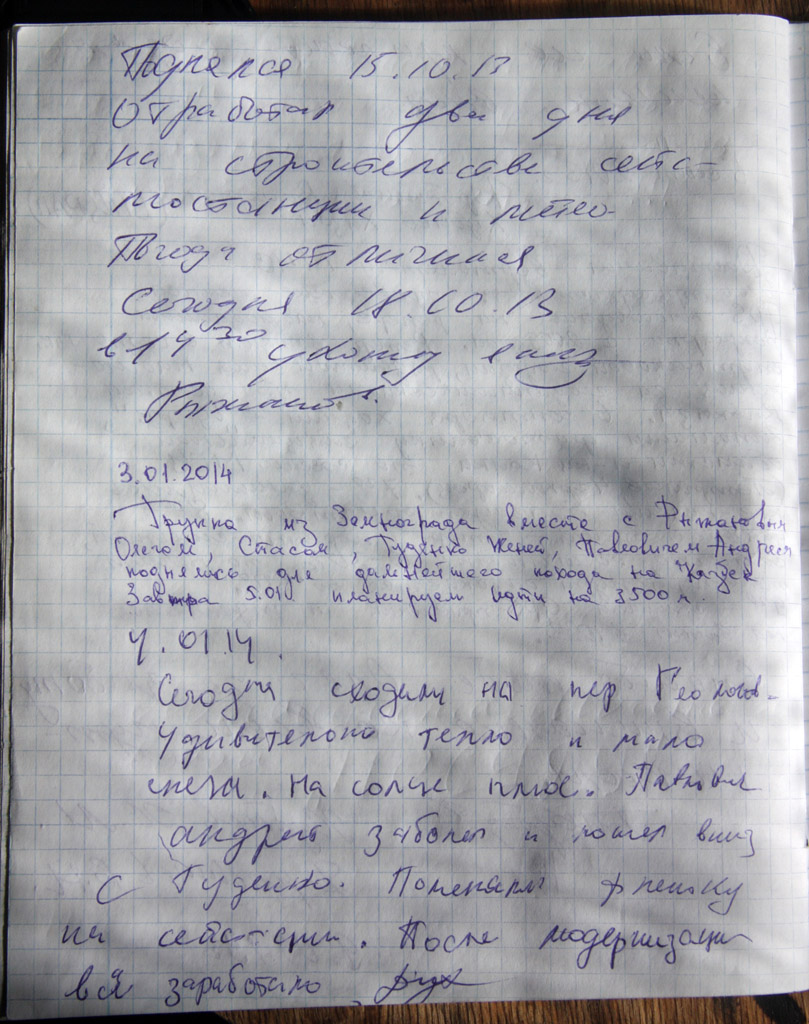 Поднялся 15.10.13
Отработал два дня
на строительстве сейс-
мостанции и метео.
Погода отличная
Сегодня 18.10.13
в 14 30 ухожу вниз
Рыжанов
3.01.2014
Группа из Зеленограда вместе с Рыжановым
Олегом, Стасом, Гуденко Женей, Павловичем Андреем
поднялись для дальнейшего похода на Казбек
Завтра 5.01. планируем идти на 3500 м.
4.01.14.
Сегодня сходили на пер Геологов.
Удивительно тепло и мало
снега. На солнце плюс. Павлович
Андрей заболел и пошел вниз
с Гуденко. Поменяли флешку
на сейстанции. После модернизации
всё заработало